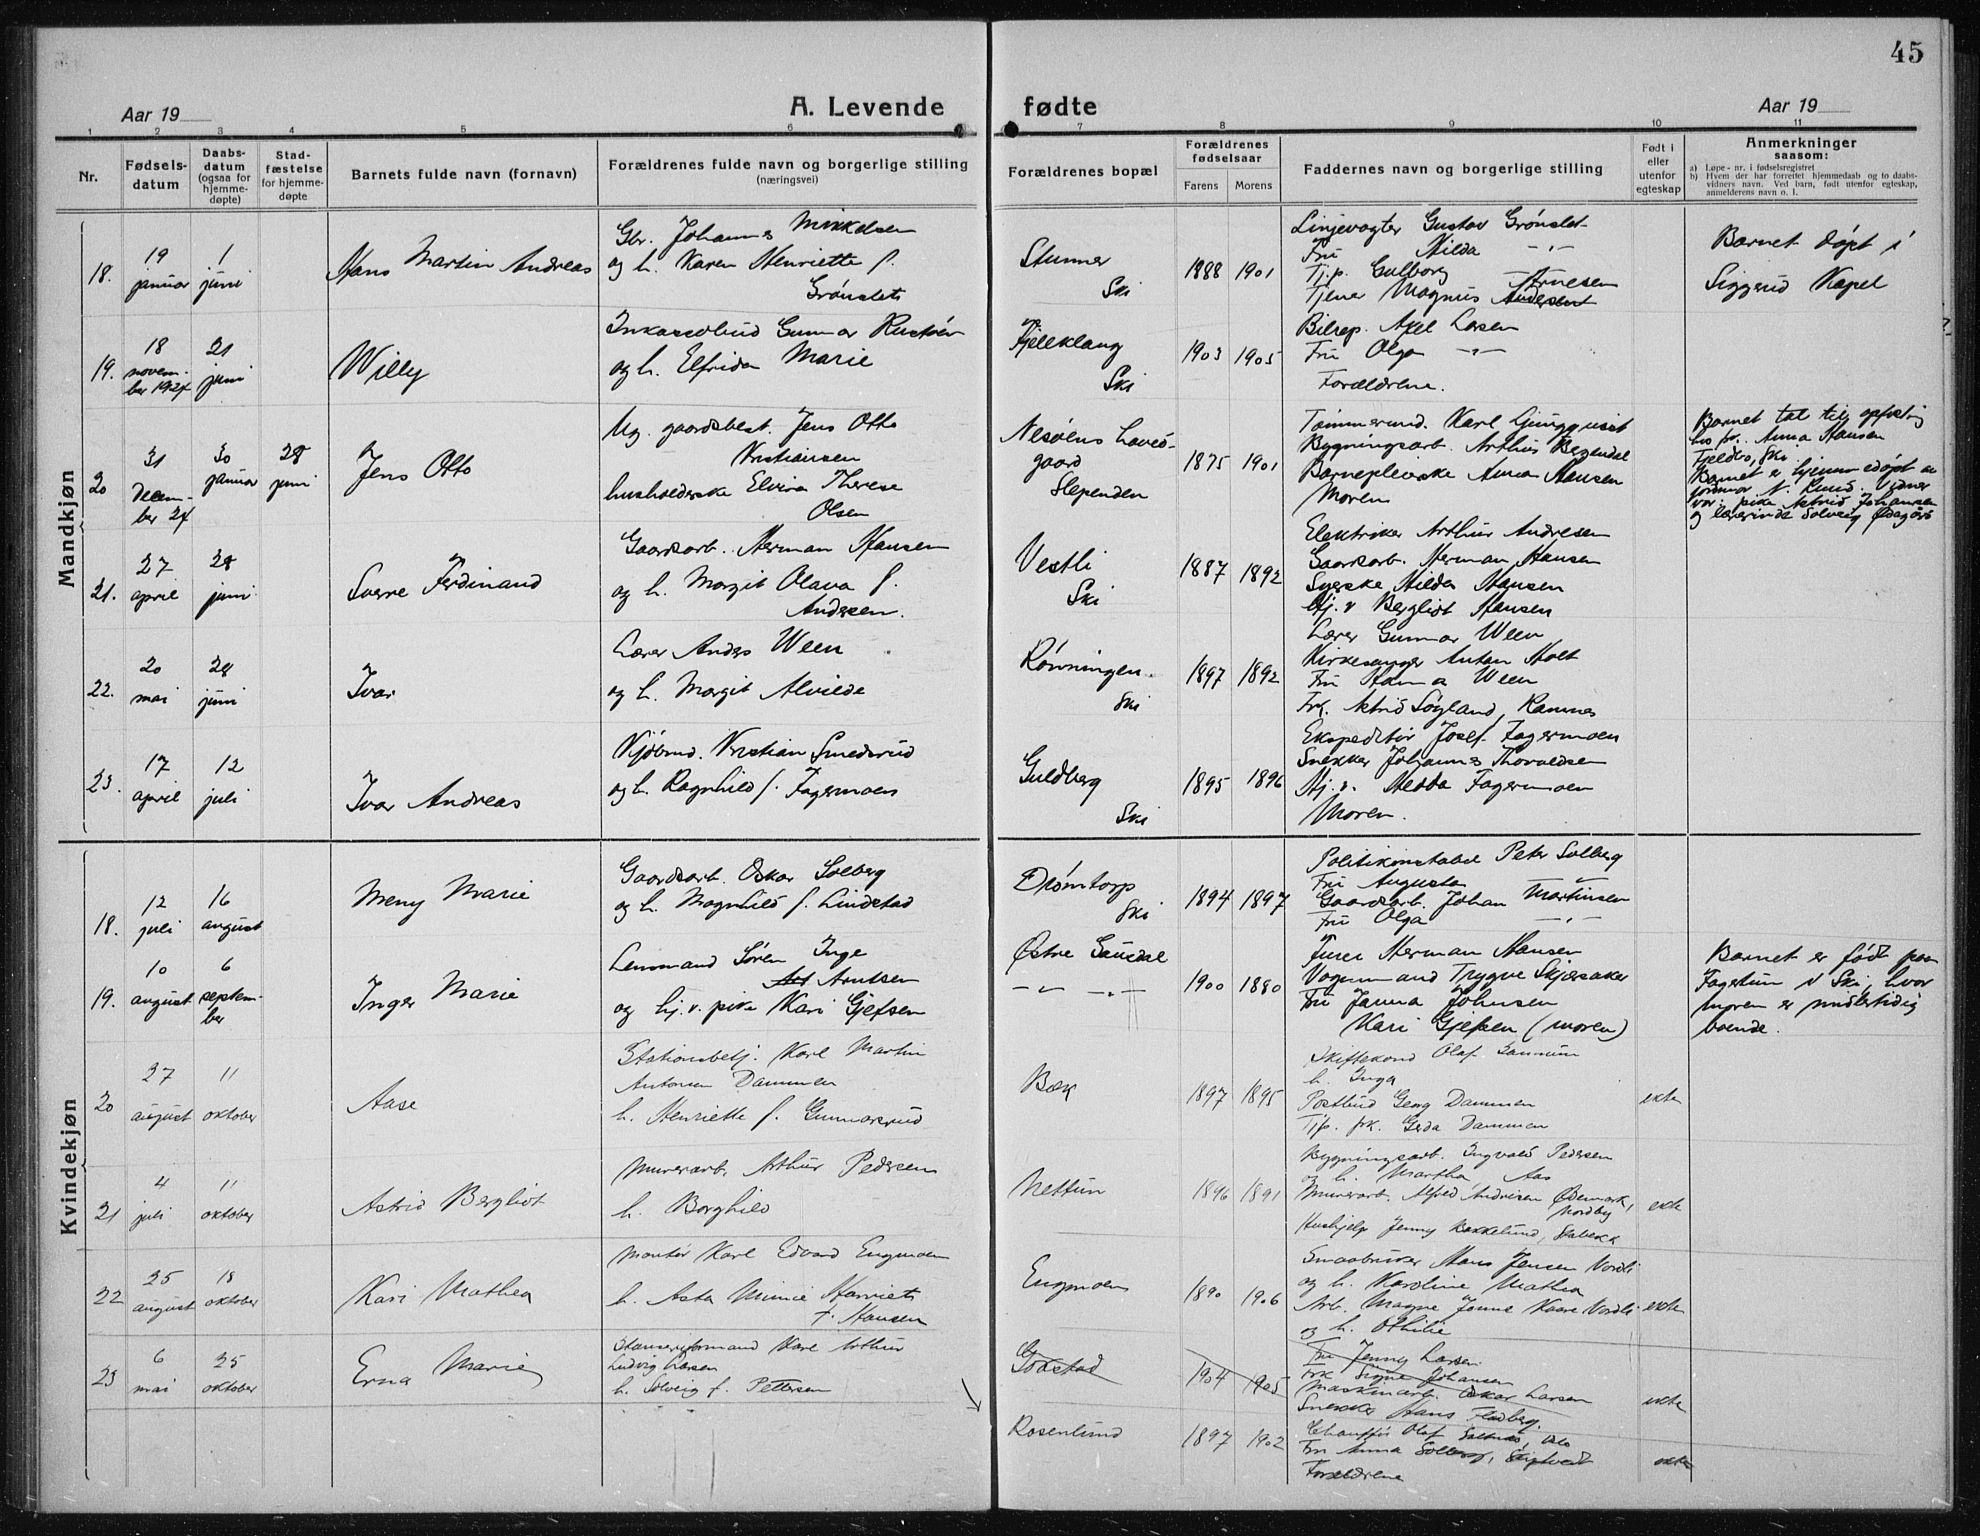 45
Aar 19
A. Levende
fødte
Aar 19
1 2 3 4 5 6 7 8 9 10 11
Nr.
Fødsels-
datum
Daabs-
datum
(ogsaa for
hjemme-
døpte)
Stad-
fæstelse
for hjemme-
døpte
Barnets fulde navn (fornavn)
Forældrenes fulde navn og borgerlige stilling
(næringsvei)
Forældrenes bopæl
Forældrenes
fødselsaar
Farens Morens
Faddernes navn og borgerlige stilling
Født i
eller
utenfor
egteskap
Anmerkninger
saasom:
a) Løpe-nr. i fødselsregistret
b) Hvem der har forrettet hjemmedaab og to daabs-
vidners navn. Ved barn, født utenfor egteskap,
anmelderens navn o. l.
Mandkjøn
18.
19
januar
1
juni
Hans Martin Andreas
Gbr. Johannes Mikkelsen
og h. Karen Henriette f.
Grønslet
Stunner
Ski
1888 1901
Linjevogter Gustav Grønslet
Fru Hilda -"-
Tj.p. Gulborg
Tjener Magnus Arnesen
Barnet døpt i
Siggerud Kapel
19.
18
novem-
ber 1924
21
juni
Willy
Inkassobud Gunnar Rustøen
og h. Elfrida Marie
Fjeleklang
Ski
1903 1905
Bilrep. Axel Larsen
Fru Olga -"-
Forældrene.
20
31
Decem-
ber 24
30
januar
28
juni
Jens Otto
Ug. gaardsbest. Jens Otto
Kristiansen
husholderske Elvira Therese
Olsen
Nesøens Lavés-
gaard
Slependen
1875 1901
Tømmermd. Karl Ljungquist
Bygningsarb. Arthur
Barnepleierske Anna Hansen
Moren
Barnet tat til opfostring
hos fr. Anna Hansen
Fjeldbo, Ski.
Barnet er hjemmedøpt av
jormor N. Ruud. Vidner
var: pike Astrid Johansen
og lærerinde Solveig
21.
27
april
28
juni
Sverre Ferdinand
Gaardsarb. Herman Hansen
og h. Margit Olava f.
Andersen.
Vestli
Ski
1887 1892
Elektriker Arthur Andresen
Gaardsarb. Herman Hansen
Syerske Hilda Hansen
Hj. v Bergliot Hansen
22.
20
mai
28
juni
Ivar
Lærer Anders Ween
og h. Margit Alvilde
Rønningen
Ski
1897 1892
Lærer Gunnar Ween
Kirkesanger Anton Holt
Fru Hanna Ween
Frk. Astrid Søyland, Ramnes
23.
17
april
12
juli
Ivar Andreas
Kjøbmd. Kristian Smedsrud
og h. Ragnhild f. Fagermoen
Guldberg
Ski
1895 1896
Ekspeditør Josef Fagermoen
Snekker Johannes Thorvaldsen
Hj. v. Hedda Fagermoen
Moren.
Kvindekjøn
18.
12
juli
16
august
Meny Marie
Gaardsarb. Oskar Solberg
og h. Magnhild f. Lindstad
Drømtorp
Ski
1894 1897
Politikonstabel Peter Solberg
Fru Augusta -"-
Gaardsarb. Johan Martinsen
Fru Olga -"-
19.
10
august
6
septem-
ber
Inger Marie
Lensmand Søren Inge
Arntsen
og hj. v. pike Kari Gjefsen
Østre Gausdal
-"- -"-
1900 1880
Furer Herman Hansen
Vognmand Trygve Skjersaker
Fru Janna Johnsen
Kari Gjefsen (moren)
Barnet er født paa
Fagertun i Ski, hvor
moren er midlertidig
boende.
20
27
august
11
oktober
Aase
Stationsbetj. Karl Martin
Antonsen Dammen
h. Henriette f. Gunnarsrud
Bæk
1897 1895
Skiftekond Olaf Sannum
h. Inga
Postbud Georg Dammen
Tjp. frk. Gerda Dammen
ekte
21
4
juli
11
oktober
Astrid Bergliot
Murerarb. Arthur Pedersen
h. Borghild
Nettun
1896 1891
Bygningsarb. Ingvald Pedersen
og h. Martha Aas
Murerarb. Alfred Andresen Ødemark,
Nordby
Hushjelp Jenny Bakkelund, Stabekk
ekte
22
25
august
18
oktober
Kari Mathea
Montør Karl Edvard Engmoen
h. Asta Minnie Harriet
f. Hansen
Engmoen
1890 1906
Smaabruker Hans Jensen Nordli
og h. Karoline Mathea
Arb. Magne Jonni Kaare Nordli
og h. Othilie
ekte
23
6
mai
25
oktober
Erna Marie
Stanseriformand Karl Arthur
Ludvig Larsen
h. Solveig f. Pettersen
Gokstad
1904 1905
Fru Jenny Larsen
Frk Signe Johansen
Maskinarb. Oskar Larsen
Snekker Hans Fladberg.
ekte
Rosenlund
1897 1902
Chauffør Olaf Solberg, Oslo
Fru Anna Solberg,
Forældrene
ekte